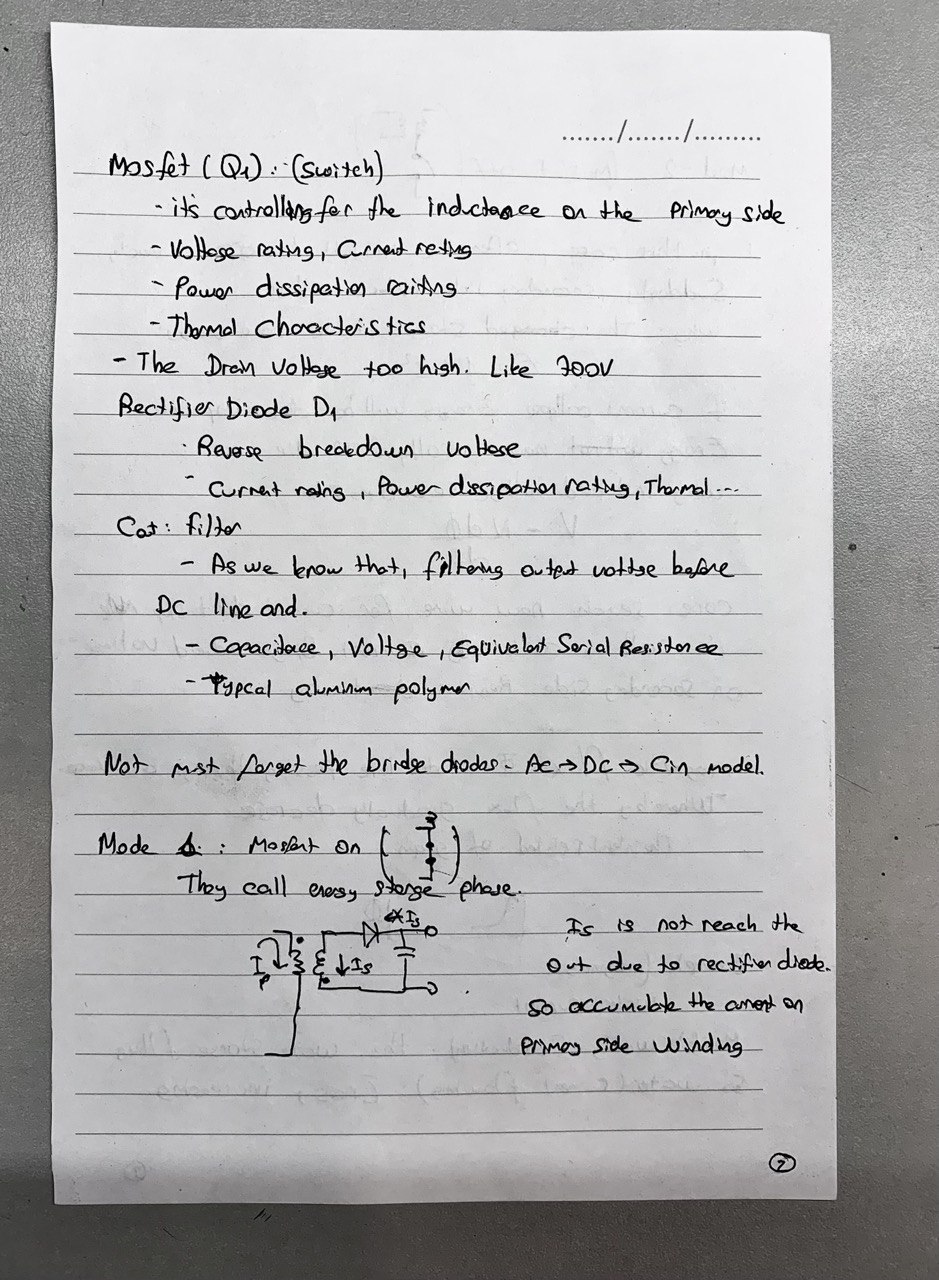 ......./......./.........
Mosfet (Q1) : (Switch)
- it's controlling for the inductance on the Primary side
- Voltage rating, Current rating
- Power dissipation raiting
- Thermal Characteristics
- The Drain Voltage too high. Like 700V
Rectifier Diode D1
· Reverse breakdown voltage
- Current rating, Power dissipation rating, Thermal ...
: filter
- As we know that, filtering output voltge before
DC line and.
- Capacitace, Voltge, Equivalent Serial Resistence
- Typcal aluminum polymer
Not mst forget the bridge diodes - AC → DC → Cin model.
Mode : Mosfet on
They call energy storge phase.
Is
Ip Is
Is is not reach the
Out due to rectifier diode.
So accumulate the current on
Primary side winding
2